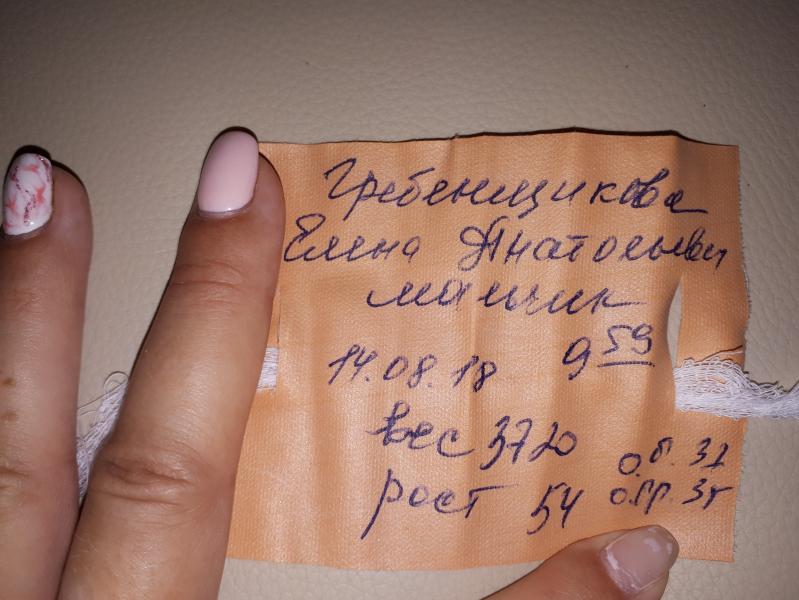 Гребенщикова
Елена Анатольевн
мальчик
14.08.18 9 59
вес 3720
рост 54
о.г.
о.гр.